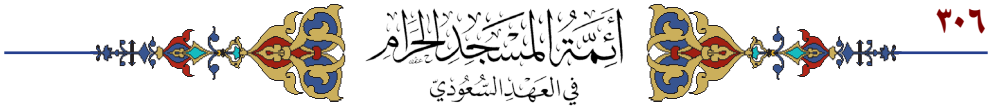 ٣٠٦
أَئِمَّةُ المَسْجِدِ الحَرَامِ
في العَهْدِ السُّعُوديّ